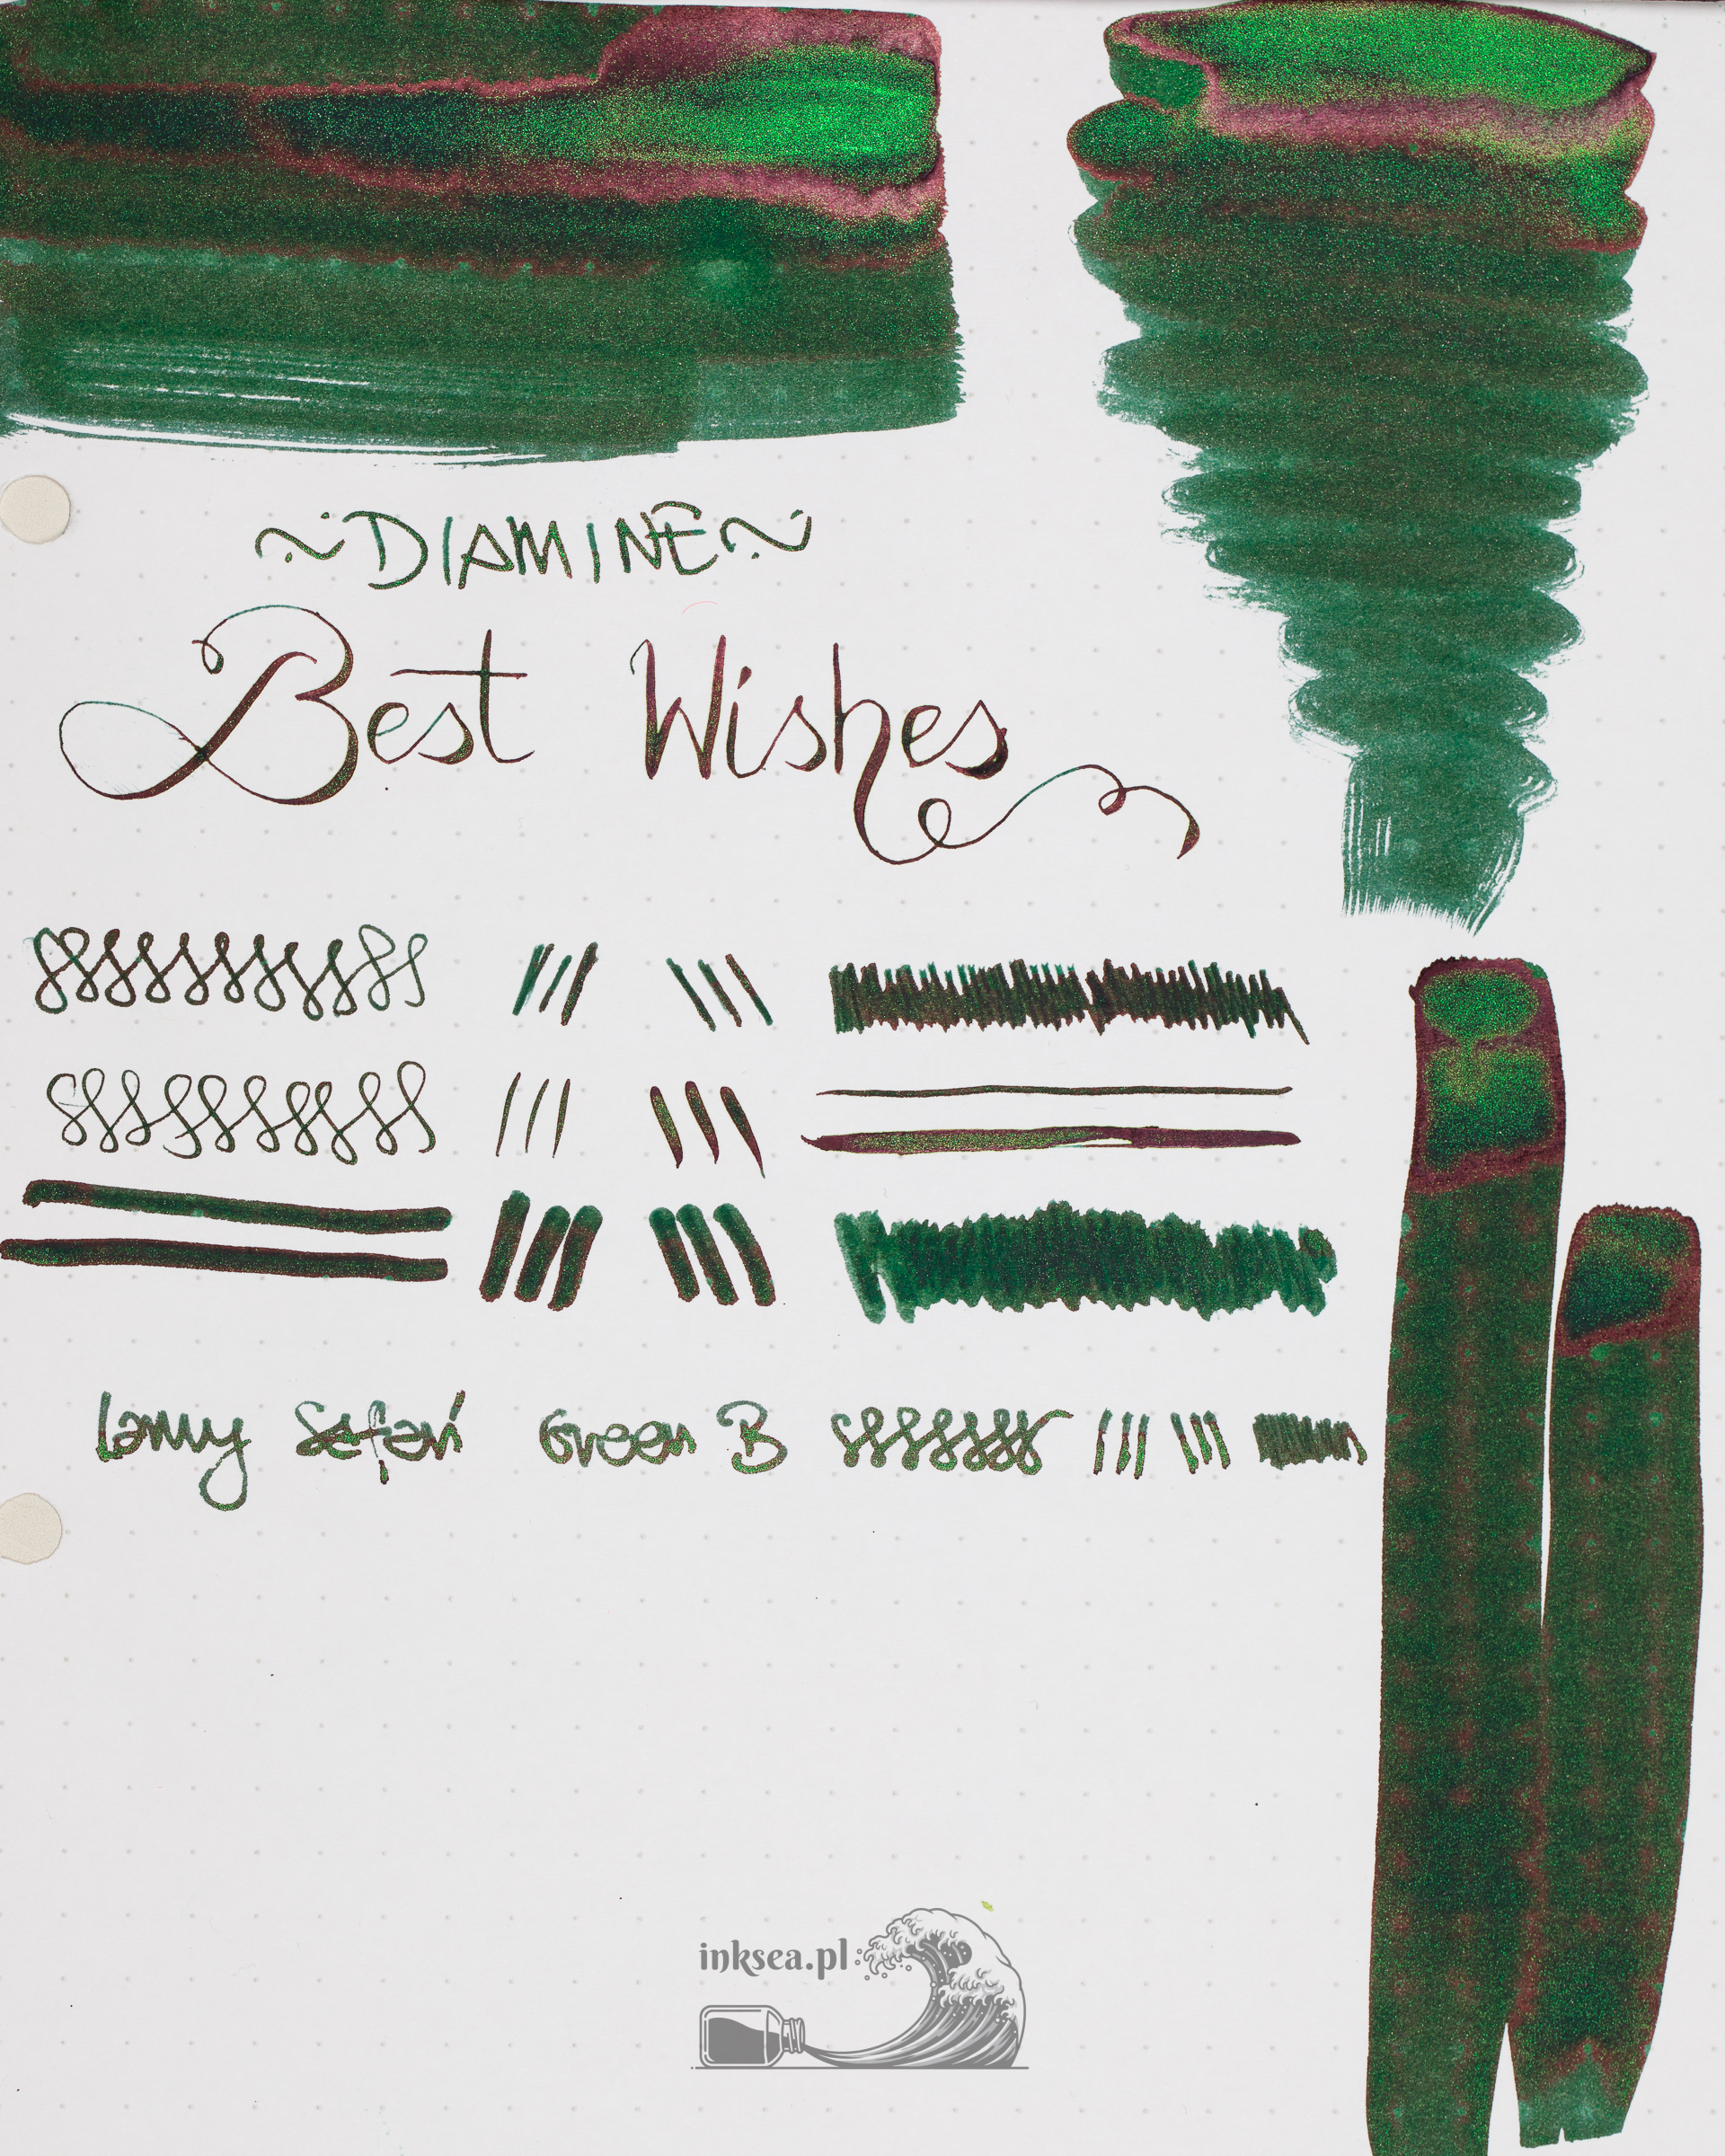 ~DIAMINE~
Best Wishes
Lamy Safari Green B
inksea.pl